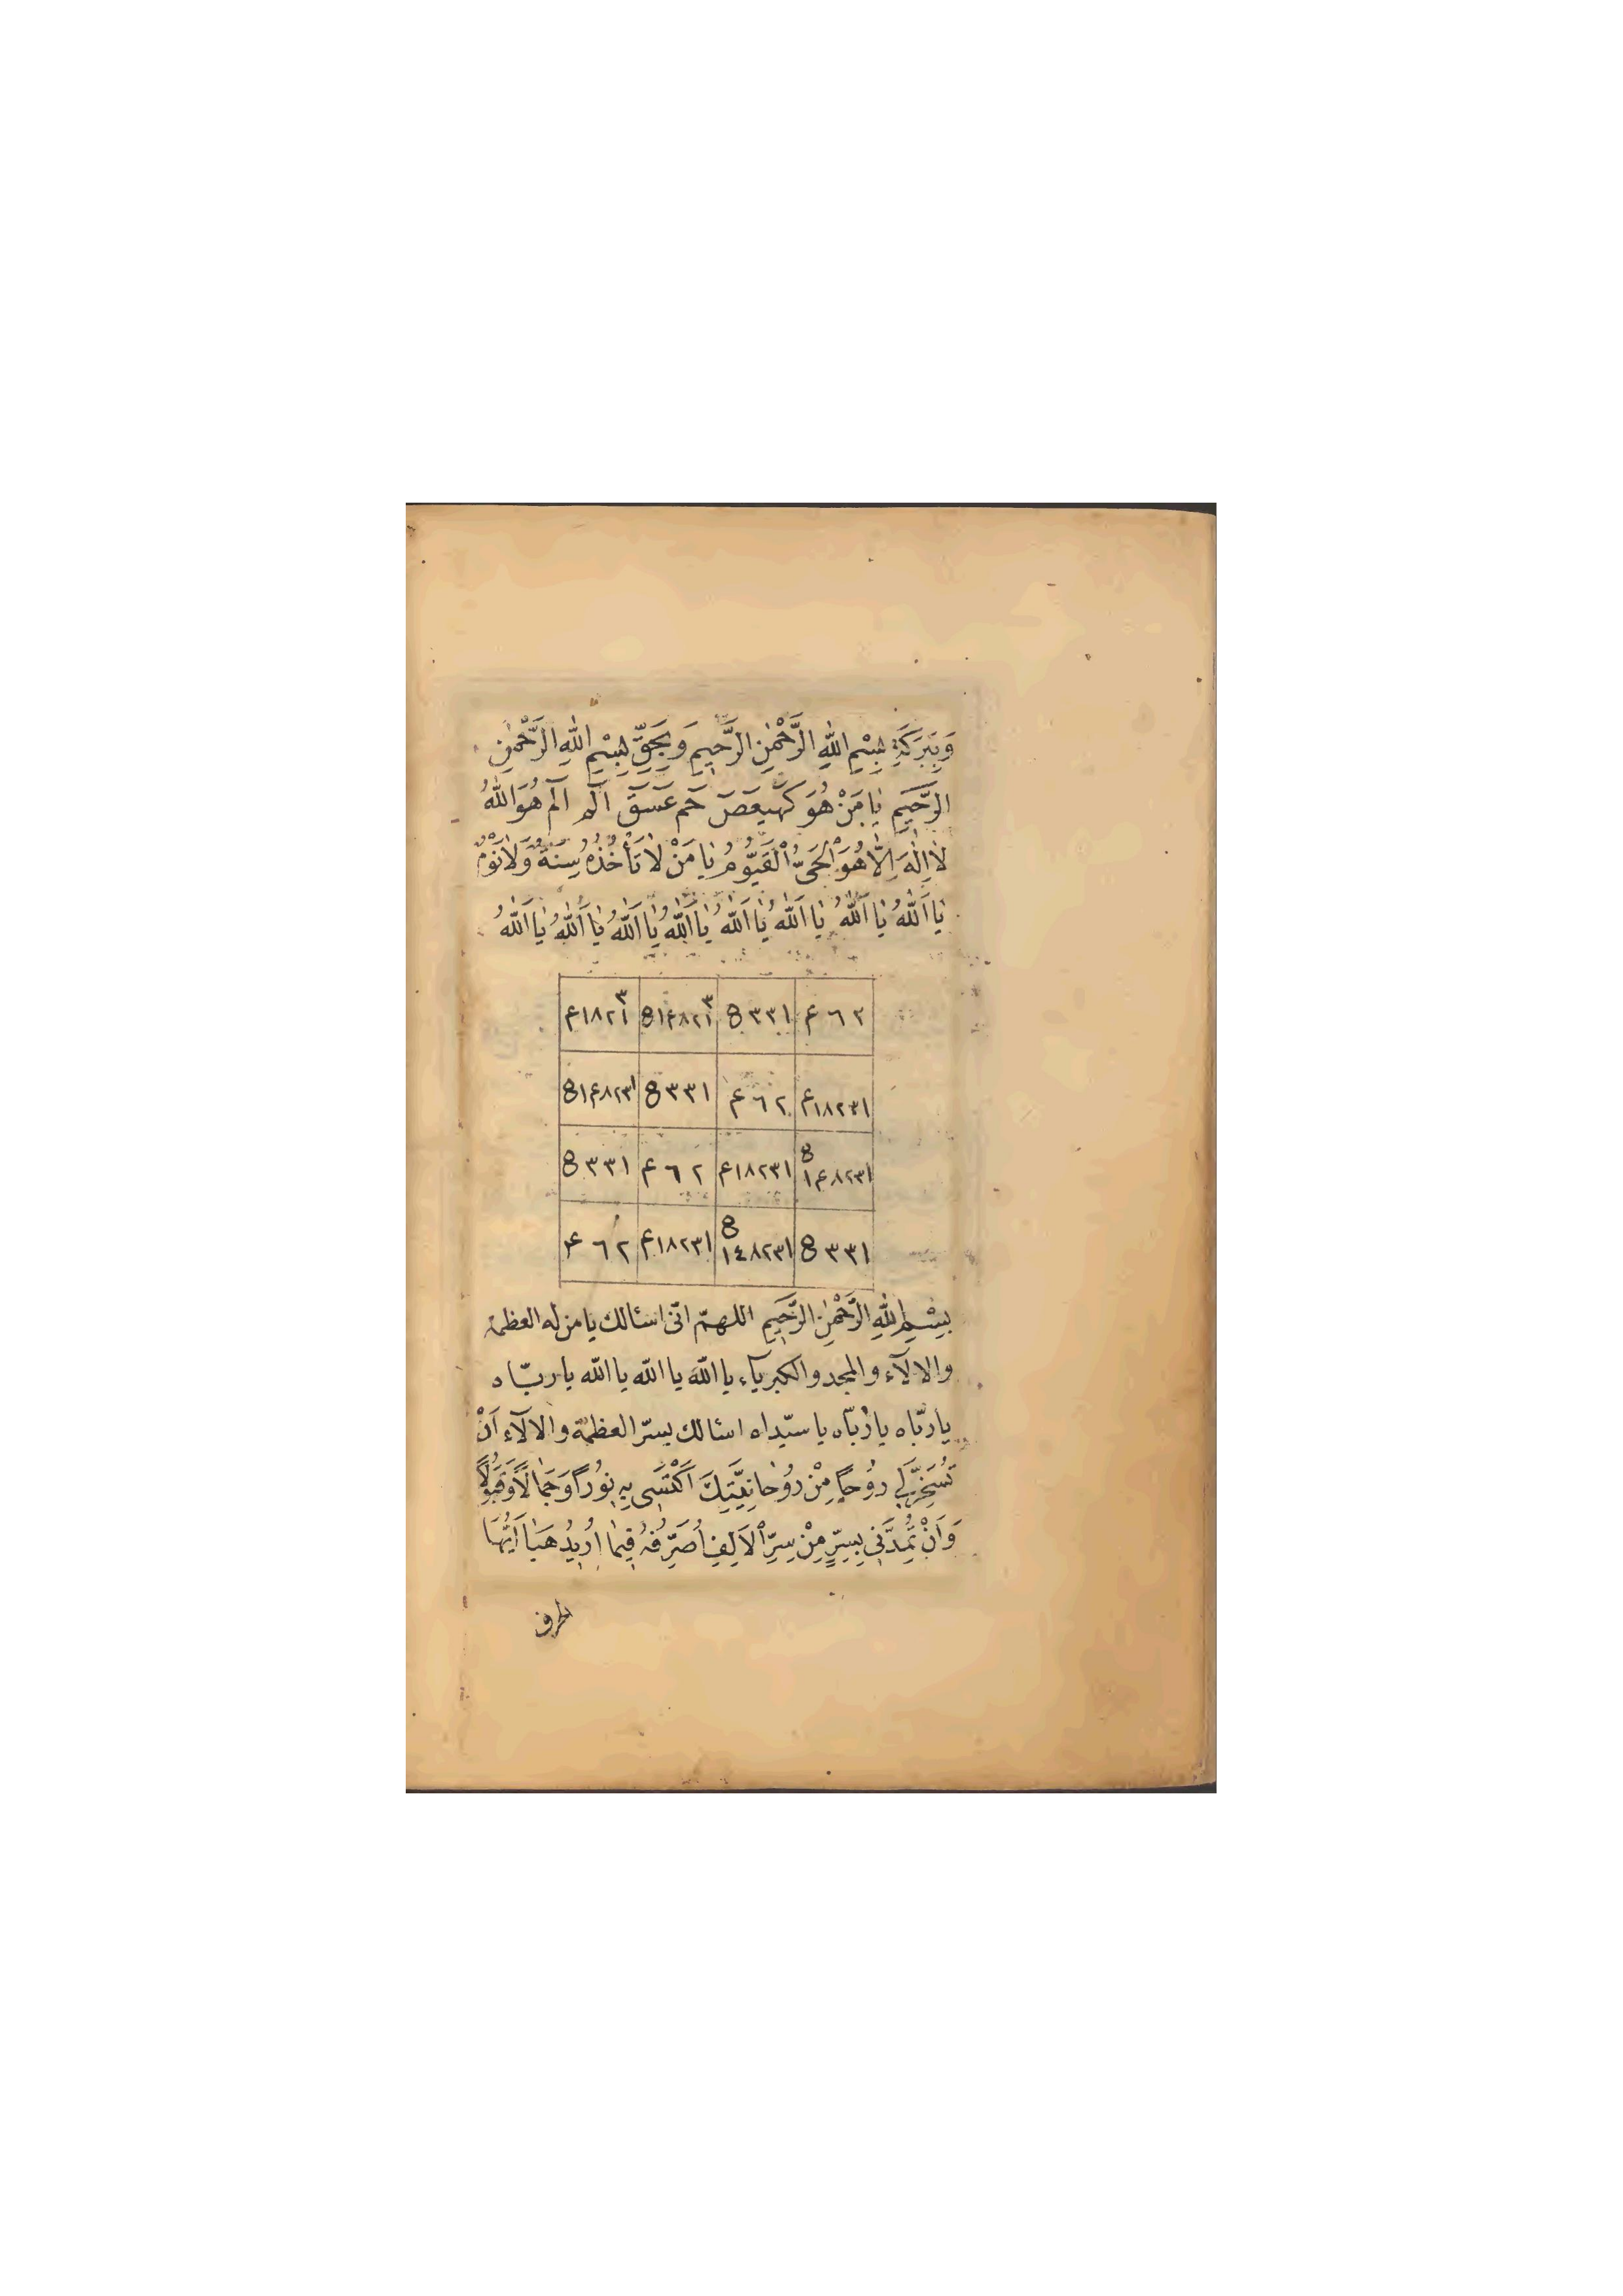 وَبِبَرَكَةِ بِسْمِ اللّٰهِ الرَّحْمٰنِ الرَّحِيمِ وَبِحَقِّ بِسْمِ اللّٰهِ الرَّحْمٰنِ
الرَّحِيمِ يَا مَنْ هُوَ كٓهٰيٰعٓصٓ حٰمٓ عٓسٓقٓ الٓمٓر الٓمٓ هُوَ اللّٰهُ
لَا اِلٰهَ اِلَّا هُوَ الْحَىُّ الْقَيُّومُ يَا مَنْ لَا تَأْخُذُهُ سِنَةٌ وَلَا نَوْمٌ
يَا اَللّٰهُ يَا اَللّٰهُ يَا اَللّٰهُ يَا اَللّٰهُ يَا اَللّٰهُ يَا اَللّٰهُ يَا اَللّٰهُ يَا اَللّٰهُ
۴ ٦ ٢ 8 ٣٣١ 8 ١۴٨٢٣١ ۴١٨٢٣١
۴١٨٢٣١ ۴ ٦ ٢ 8 ٣٣١ 8١۴٨٢٣١
8 ١۴٨٢٣١ ۴١٨٢٣١ ۴ ٦ ٢ 8 ٣٣١
8 ٣٣١ 8 ١٤٨٢٣١ ۴١٨٢٣١ ۴ ٦ ٢
بِسْمِ اللّٰهِ الرَّحْمٰنِ الرَّحِيمِ اللهمّ انّى اسئالك يا من له العظمة
والالآء والمجد والكبريآء يا اللّٰه يا اللّٰه يا اللّٰه يا ربّاه
يا ربّاه يا ربّاه يا سيّداه اسئالك بسرّ العظمة والالآء اَنْ
تُسَخِّرَ لِى رُوْحًا مِنْ رُوْحَانِيَّتِكَ اَكْتَسَى بِهِ نُوْرًا وَجَمَالًا وَقَبُوْلًا
وَاَنْ تُمِدَّنِى بِسِرٍّ مِنْ سِرِّ الْاَلِفِ اُصَرِّفُهُ فِيمَا اُرِيْدُ هَيَا اَيُّهَا
الحرف